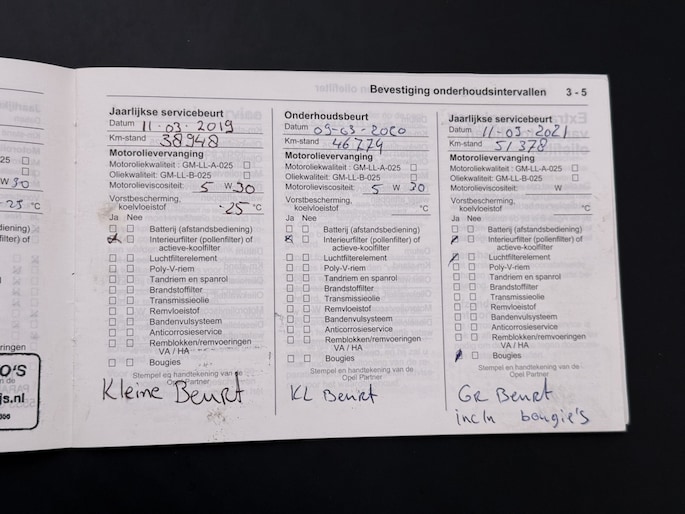 Bevestiging onderhoudsintervallen 3 - 5
Jaarlijkse servicebeurt
Datum 11-03-2019
Km-stand 38948
Motorolievervanging
Motoroliekwaliteit : GM-LL-A-025
Oliekwaliteit: GM-LL-B-025
Motorolieviscositeit: 5 W 30
Vorstbescherming,
koelvloeistof -25 °C
Ja Nee
Batterij (afstandsbediening)
Interieurfilter (pollenfilter) of
actieve-koolfilter
Luchtfilterelement
Poly-V-riem
Tandriem en spanrol
Brandstoffilter
Transmissieolie
Remvloeistof
Bandenvulsysteem
Anticorrosieservice
Remblokken/remvoeringen
VA / HA
Bougies
Stempel en handtekening van de
Opel Partner
Kleine Beurt
Onderhoudsbeurt
Datum 09-03-2020
Km-stand 46779
Motorolievervanging
Motoroliekwaliteit : GM-LL-A-025
Oliekwaliteit: GM-LL-B-025
Motorolieviscositeit: 5 W 30
Vorstbescherming,
koelvloeistof °C
Ja Nee
Batterij (afstandsbediening)
Interieurfilter (pollenfilter) of
actieve-koolfilter
Luchtfilterelement
Poly-V-riem
Tandriem en spanrol
Brandstoffilter
Transmissieolie
Remvloeistof
Bandenvulsysteem
Anticorrosieservice
Remblokken/remvoeringen
VA / HA
Bougies
Stempel en handtekening van de
Opel Partner
KL Beurt
Jaarlijkse servicebeurt
Datum 11-03-2021
Km-stand 51378
Motorolievervanging
Motoroliekwaliteit : GM-LL-A-025
Oliekwaliteit: GM-LL-B-025
Motorolieviscositeit: W
Vorstbescherming,
koelvloeistof °C
Ja Nee
Batterij (afstandsbediening)
Interieurfilter (pollenfilter) of
actieve-koolfilter
Luchtfilterelement
Poly-V-riem
Tandriem en spanrol
Brandstoffilter
Transmissieolie
Remvloeistof
Bandenvulsysteem
Anticorrosieservice
Remblokken/remvoeringen
VA / HA
Bougies
Stempel en handtekening van de
Opel Partner
GR Beurt
incln bougie's